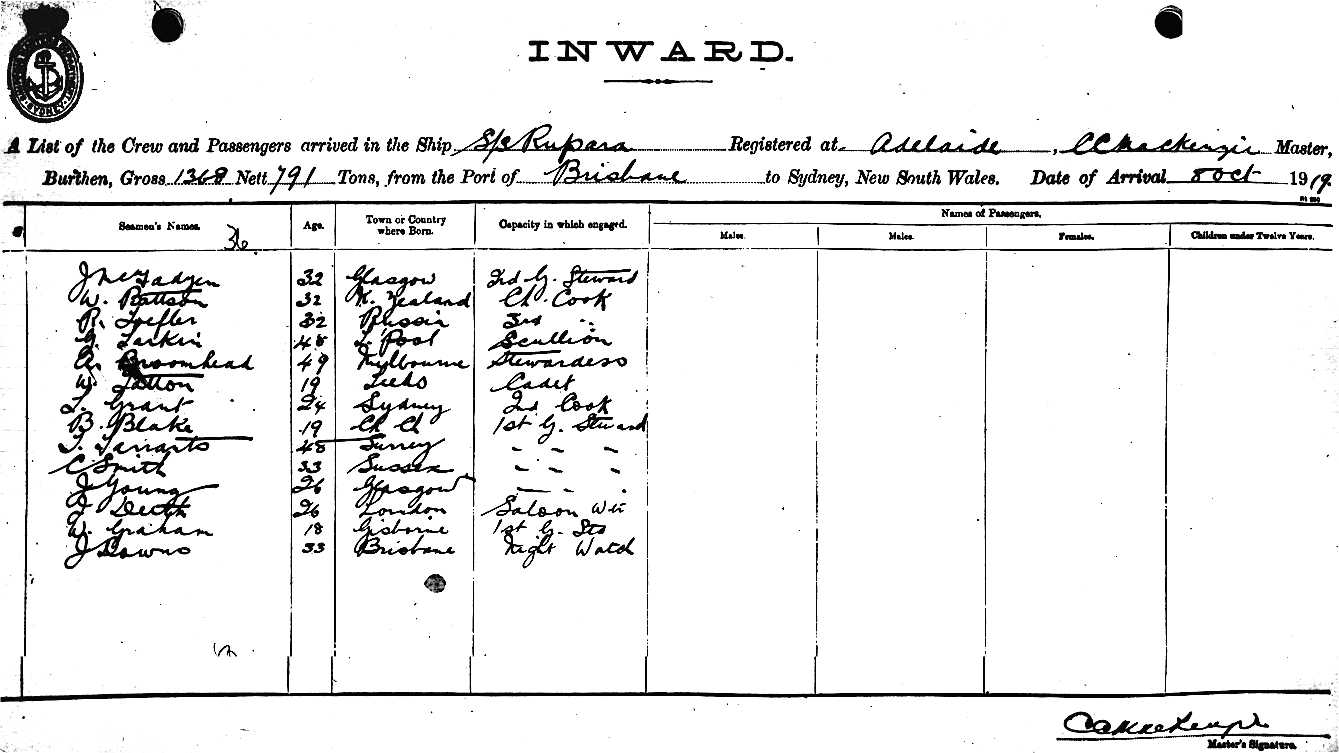 INWARD.
A List of the Crew and Passengers arrived in the Ship S/S Rupara Registered at Adelaide, CC Mackenzie Master,
Burthen, Gross 1368 Nett 791 Tons, from the Port of Brisbane to Sydney, New South Wales. Date of Arrival 8 Oct 1919.
Seamen's Names. Age. Town or Country where Born. Capacity in which engaged. Names of Passengers.
Males. Males. Females. Children under Twelve Years.
36
J 32 Glasgow 2nd G. Steward
W. Pattson 32 N. Zealand Ch. Cook
R. Loefler 32 Russia 3rd "
G. Larkin 48 L. Pool Scullion
A. Broomhead 49 Mylbourne Stewardess
W. Tatton 19 Leeds Cadet
T. Grant 24 Sydney 2nd Cook
B. Blake 19 Ch Ch 1st G. Steward
T. Tarrants 48 Surrey - - -
C Smith 33 Sussex - - -
J Young 26 Glasgow - - .
J 26 London Saloon
W. Graham 18 Gisborne 1st G. Std
J Downs 33 Brisbane Night Watch
Master's Signature.
SYDNEY